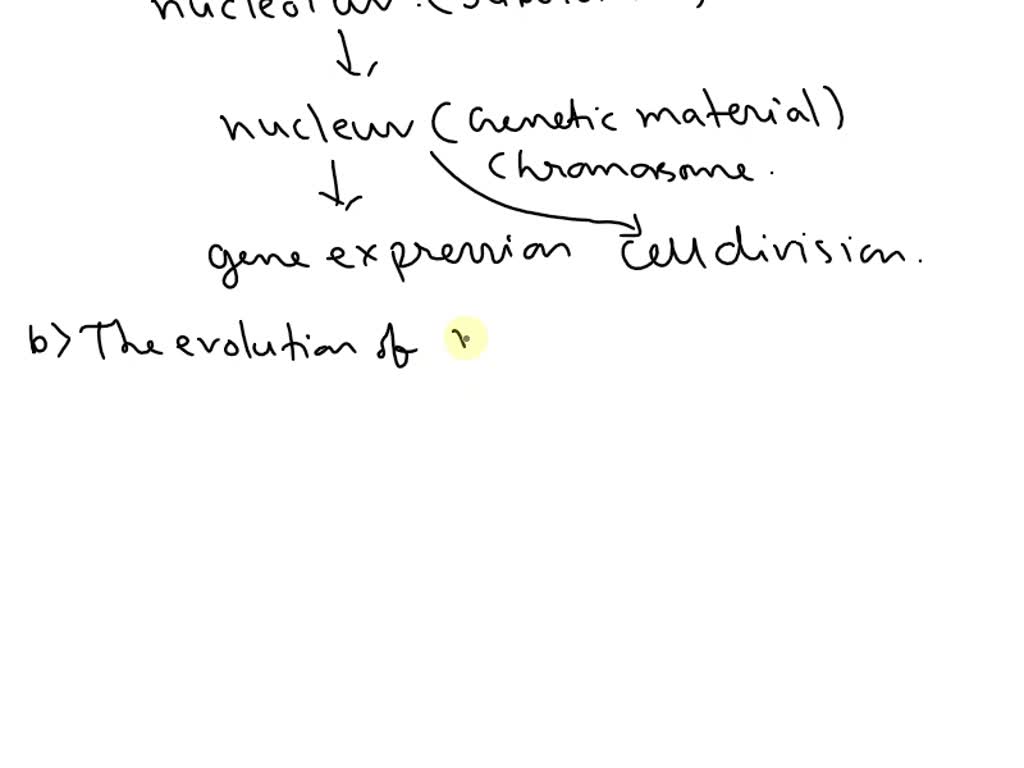 nucleolus
nucleus (Genetic material)
Chromosome.
gene expression cell division.
b) The evolution of